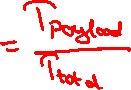 = T payload
T total